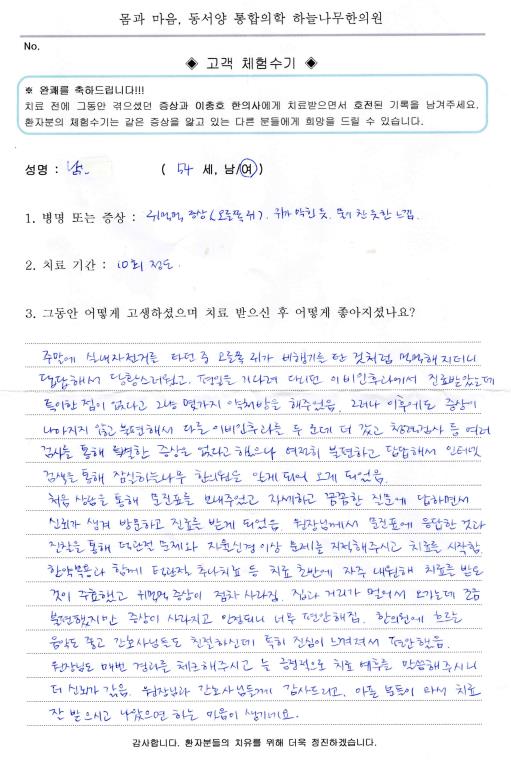 몸과 마음, 동서양 통합의학 하늘나무한의원
No.
◈ 고객 체험수기 ◈
※ 완쾌를 축하드립니다!!!
치료 전에 그동안 겪으셨던 증상과 이충호 한의사에게 치료받으면서 호전된 기록을 남겨주세요.
환자분의 체험수기는 같은 증상을 앓고 있는 다른 분들에게 희망을 드릴 수 있습니다.
성명 : 남 ( 54 세, 남/여)
1. 병명 또는 증상 : 귀먹먹 증상(오른쪽 귀). 귀가 막힌 듯. 물이 찬 듯한 느낌.
2. 치료 기간 : 10회 정도.
3. 그동안 어떻게 고생하셨으며 치료 받으신 후 어떻게 좋아지셨나요?
주말에 실내자전거를 타던 중 오른쪽 귀가 비행기를 탄 것처럼 먹먹해지더니
답답해서 당황스러웠고. 평일을 기다려 다니던 이비인후과에서 진료받았는데
특이한 점이 없다고 그냥 몇가지 약처방을 해주었음. 그러나 이후에도 증상이
나아지지 않고 불편해서 다른 이비인후과를 두 군데 더 갔고 청력검사 등 여러
검사를 통해 특별한 증상은 없다고 했으나 여전히 불편하고 답답해서 인터넷
검색을 통해 잠실하늘나무 한의원을 알게 되어 오게 되었음.
처음 상담을 통해 문진표를 보내주었고 자세하고 꼼꼼한 질문에 답하면서
신뢰가 생겨 방문하고 진료를 받게 되었음. 원장님께서 문진표에 응답한 것과
진찰을 통해 턱관절 문제와 자율신경이상 문제를 지적해주시고 치료를 시작함.
한약복용과 함께 턱관절 추나치료 등 치료 초반에 자주 내원해 치료를 받은
것이 주효했고 귀먹먹 증상이 점차 사라짐. 집과 거리가 멀어서 오가는데 조금
불편했지만 증상이 사라지고 안정되니 너무 편안해짐. 한의원에 흐르는
음악도 좋고 간호사님들도 친절하신데 특히 진심이 느껴져서 편안했음.
원장님도 매번 경과를 체크해주시고 늘 긍정적으로 치료 예후를 말씀해주시니
더 신뢰가 갔음. 원장님과 간호사님들께 감사드리고, 아픈 분들이 와서 치료
잘 받으시고 나았으면 하는 마음이 생기네요.
감사합니다. 환자분들의 치유를 위해 더욱 정진하겠습니다.